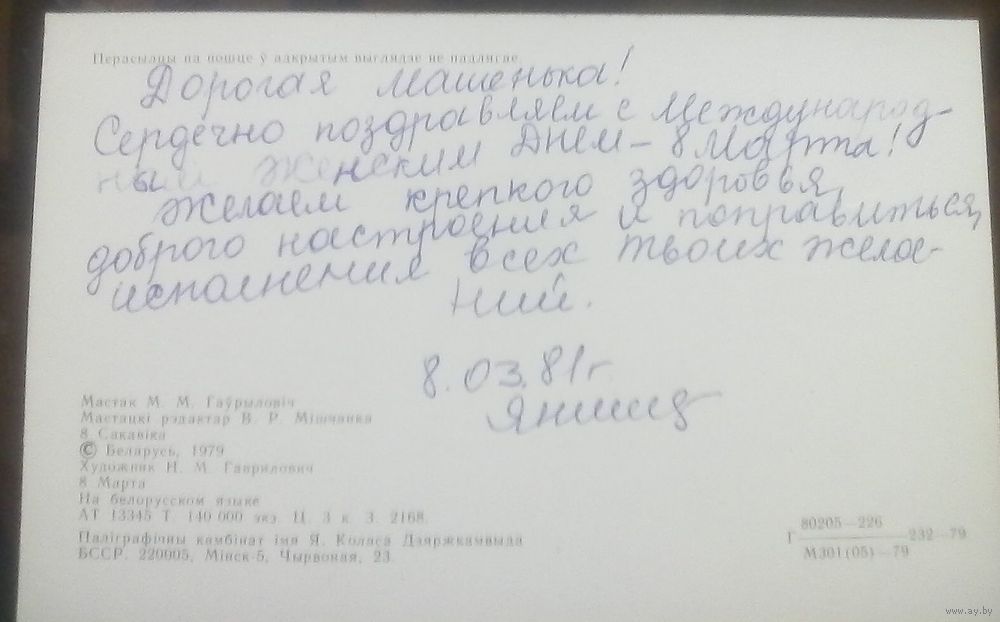 Перасылцы па пошце ў адкрытым выглядзе не падлягае
Дорогая Машенька!
Сердечно поздравляем с Международ-
ным Женским Днем – 8 Марта!
Желаем крепкого здоровья,
доброго настроения и поправиться,
исполнения всех твоих жела-
ний.
8.03.81г
Мастак М. М. Гаўрыловіч
Мастацкі рэдактар В. Р. Мішчанка
8 Сакавіка
© Беларусь, 1979
Художник Н. М. Гаврилович
8 Марта
На белорусском языке
АТ 13345 Т. 140 000 экз. Ц. 3 к. З. 2168.
Паліграфічны камбінат імя Я. Коласа Дзяржкамвыда
БССР. 220005, Мінск-5, Чырвоная, 23.
80205—226
Г 232—79
М301(05)—79
www.ay.by